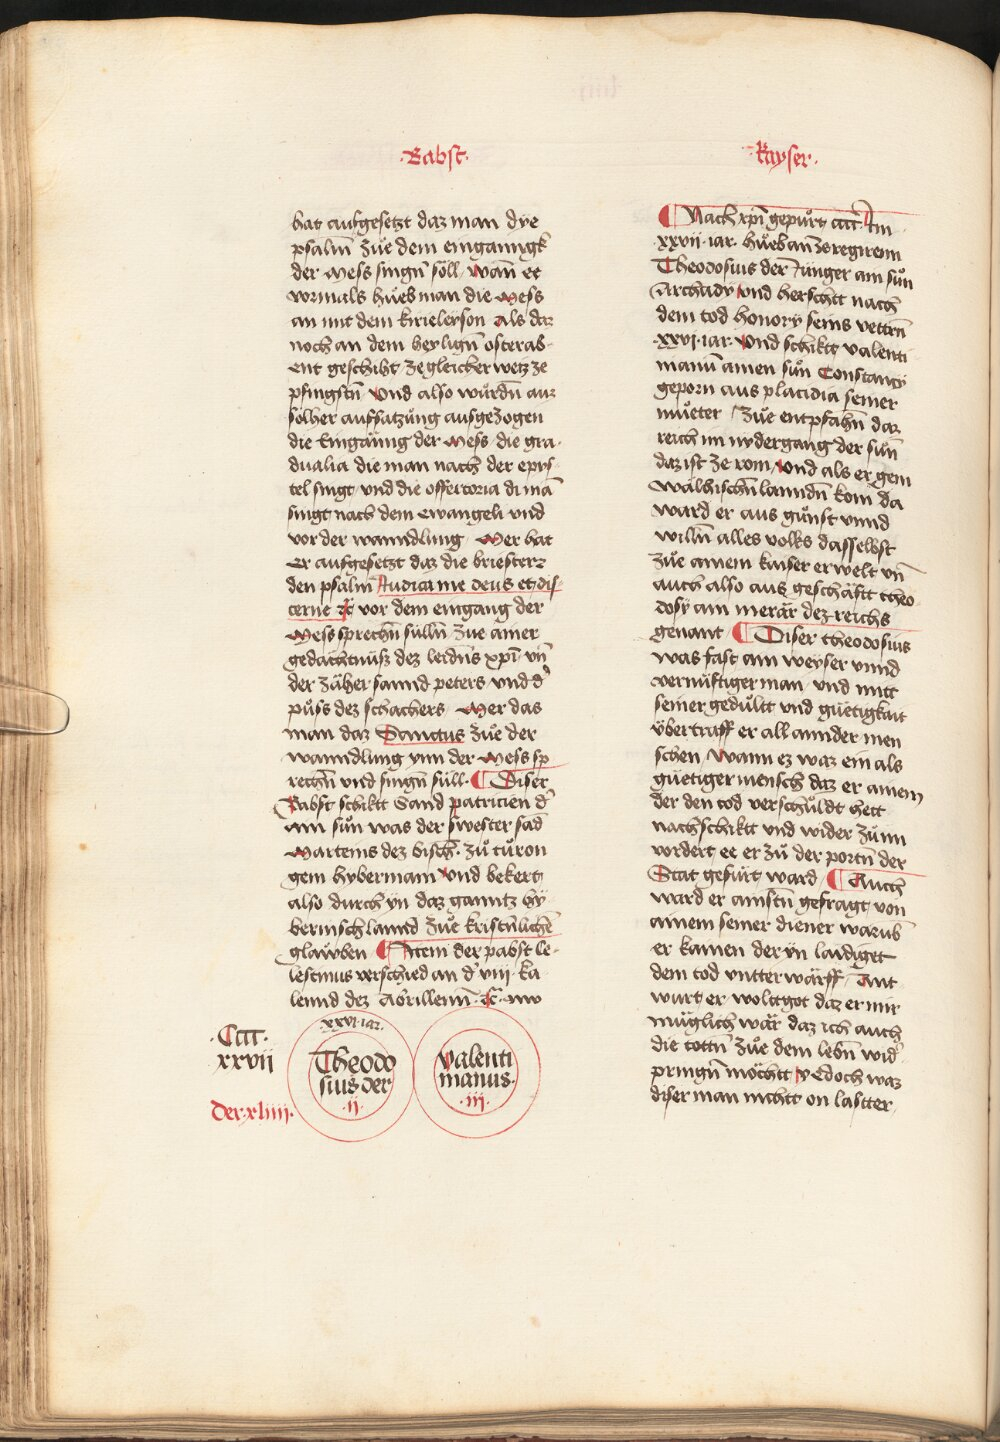 ·Babst·
hat aufgesetzt daz man dye
psalm̄ zuͤe dem einganngk
der Mess singn̄ söll Wan̄ et
vormals hueb man die Mess
an mit dem kirieleyson Als daz
noch an dem heylign̄ osterab-
ent geschiht ze gleicher weiz ze
pfingstn̄ Und also würdn̄ aus
sölher aufsatzung ausgezogen
die Einganng der Mess die gra-
dualia die man nach der epys-
tel singt und die offertoria di mā
singt nach dem Ewangeli und
vor der wanndlung Mer hat
er aufgesetzt daz die briester
den psalm̄ Judica me deus et dis-
cerne zc̄ vor dem eingang der
Mess sprechn̄ sulln̄ zue ainer
gedächtnüss dez leidn̄s xpī vn̄
der zäher sannd peters vnd d'
püss dez schachers Mer das
man daz Sanctus zuͤe der
wanndlung ynn der Mess sp
rechn̄ vnd singn̄ süll· ¶ Diser
Babst schiktt Sand patricien d'
ain sun was der swester sād
Martems dez bisch̄· zu turon
gem hybermain vnd bekert
also durch yn daz ganntz hy
bernisch lannd zuͤe kristnlichē
glawben ¶ Item der pabst Ce-
lestinus verschied an d' viii· ka
lennd dez Abrillenn̄·
xxvi·iar·
·Cccc·
xxvii
Theodo
sius der
·ii·
Valenti
nianus·
·iii·
der·xliiii·
·Kayser·
¶ Nach xpī gepurt cccc̄ Im
·xxvii·iar· hueb an ze regirenn
Theodosius der Junger ain sun
Archady vnd herschtt nach
dem tod honory seins vettrn̄
·xxvi·iar· Und schiktt valenti
nianū ainen sun Constancy
geporn aus placidia seiner
mueter zuͤe entpfahn̄ daz
reich im nydergang der sun̄
daz ist ze rom Und als er gem
wälhischn̄ lanndn̄ kom da
ward er aus gunst vnnd
willn̄ alles volks dasselbst
zuͤe ainem kaiser erwelt vn̄
auch also aus geschäftt theo
dosy ain merär dez reichs
genant ¶ Diser theodosius
was fast ain weyser vnnd
vernüftiger man vnd mitt
seiner gedultt vnd guetigkait
übertraff er all annder men
schen Wann ez waz ein als
guetiger mensch daz er ainem
der den tod verschuldt hett
nachschiktt vnd wider zu im
vordert ee er zu der portn̄ der
Stat gefurt ward ¶ Auch
ward er ainstn̄ gefragt von
ainem seiner diener warub̄
er kainen der yn laidiget
dem tod vntterwärff Ant
wurt er wolt got daz er mir
müglich wär daz ich auch
die tottn̄ zuͤe dem lebn̄ wid'
pringn̄ möchtt yedoch waz
diser man nichtt on lastter